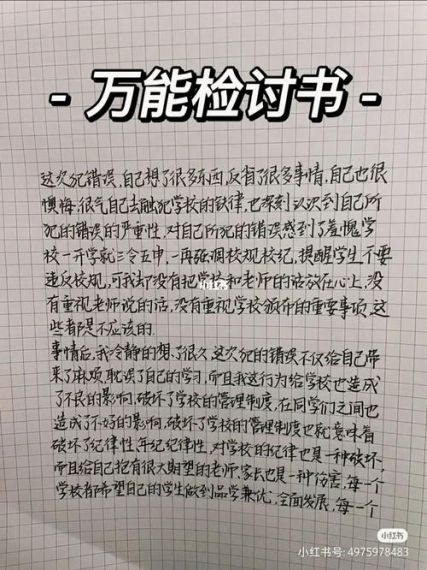 - 万能检讨书 -
这次犯错误,自己想了很多东西,反省了很多事情,自己也很
懊悔,很气自己去触犯学校的铁律,也深刻认识到自己所
犯的错误的严重性,对自己所犯的错误感到了羞愧学
校一开学就三令五申,一再强调校规校纪,提醒学生不要
违反校规,可我却没有把学校和老师的话放在心上,没
有重视老师说的话,没有重视学校颁布的重要事项,这
些都是不应该的.
事情后,我冷静的想了很久,这次犯的错误不仅给自己带
来了麻烦,耽误了自己的学习,而且我这行为给学校也造成
了不良的影响,破坏了学校的管理制度,在同学们之间也
造成了不好的影响,破坏了学校的管理制度也就意味着
破坏了纪律性,年纪纪律性,对学校的纪律也是一种破坏,
而且给自己抱有很大期望的老师,家长也是一种伤害,每一个
学校都希望自己的学生做到品学兼优,全面发展,每一个
小红书
小红书
小红书号: 4975978483